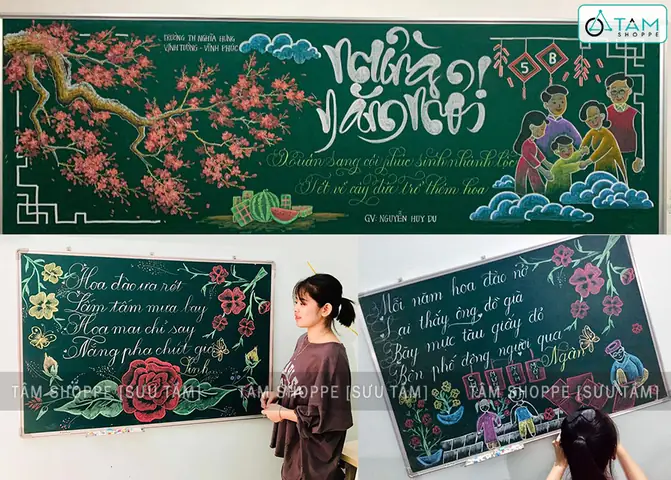 TAM
SHOPPE
TRƯỜNG TH NGHĨA HƯNG
VĨNH TƯỜNG - VĨNH PHÚC
5 B
xuân sang cội phúc sinh nhành lộc
Tết về cây đức trổ thêm hoa
GV: NGUYỄN HUY DU
Hoa đào ưa rét
Lấm tấm mưa bay
Hoa mai chỉ say
Nắng pha chút gió
Linh
Mỗi năm hoa đào nở
Lại thấy ông đồ già
Bày mực tàu giấy đỏ
Bên phố đông người qua
Ngân
TÂM SHOPPE [SƯU TẦM]
TÂM SHOPPE [SƯU TẦM]
TÂM SHOPPE [SƯU TẦM]